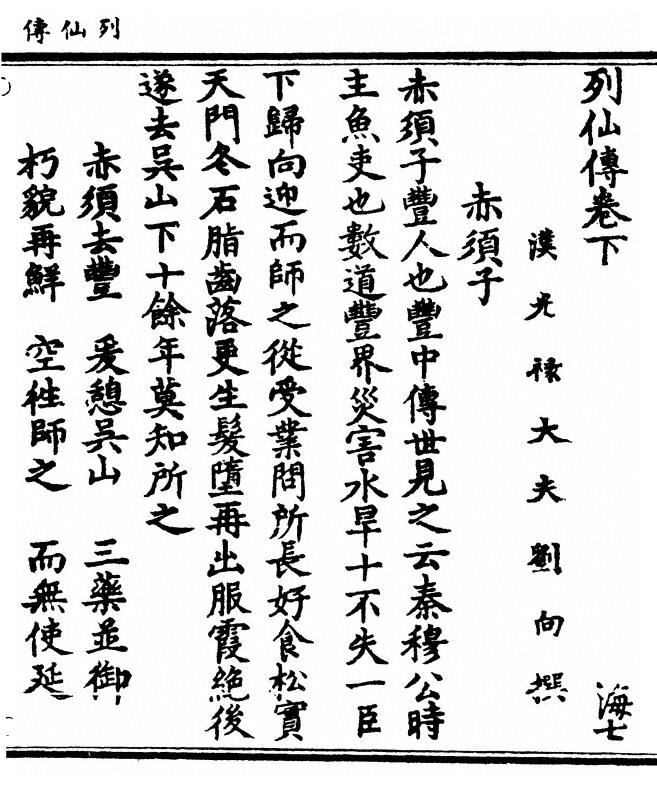 列仙傳
列仙傳卷下
海七
漢光禄大夫劉向撰
赤須子
赤須子豐人也豐中傳世見之云秦穆公時
主魚吏也數道豐界災害水旱十不失一臣
下歸向迎而師之從受業問所長好食松實
天門冬石脂齒落更生髮墮再出服霞絶後
遂去吳山下十餘年莫知所之
赤須去豐 爰憩吳山 三藥並御
朽貌再鮮 空往師之 而無使延